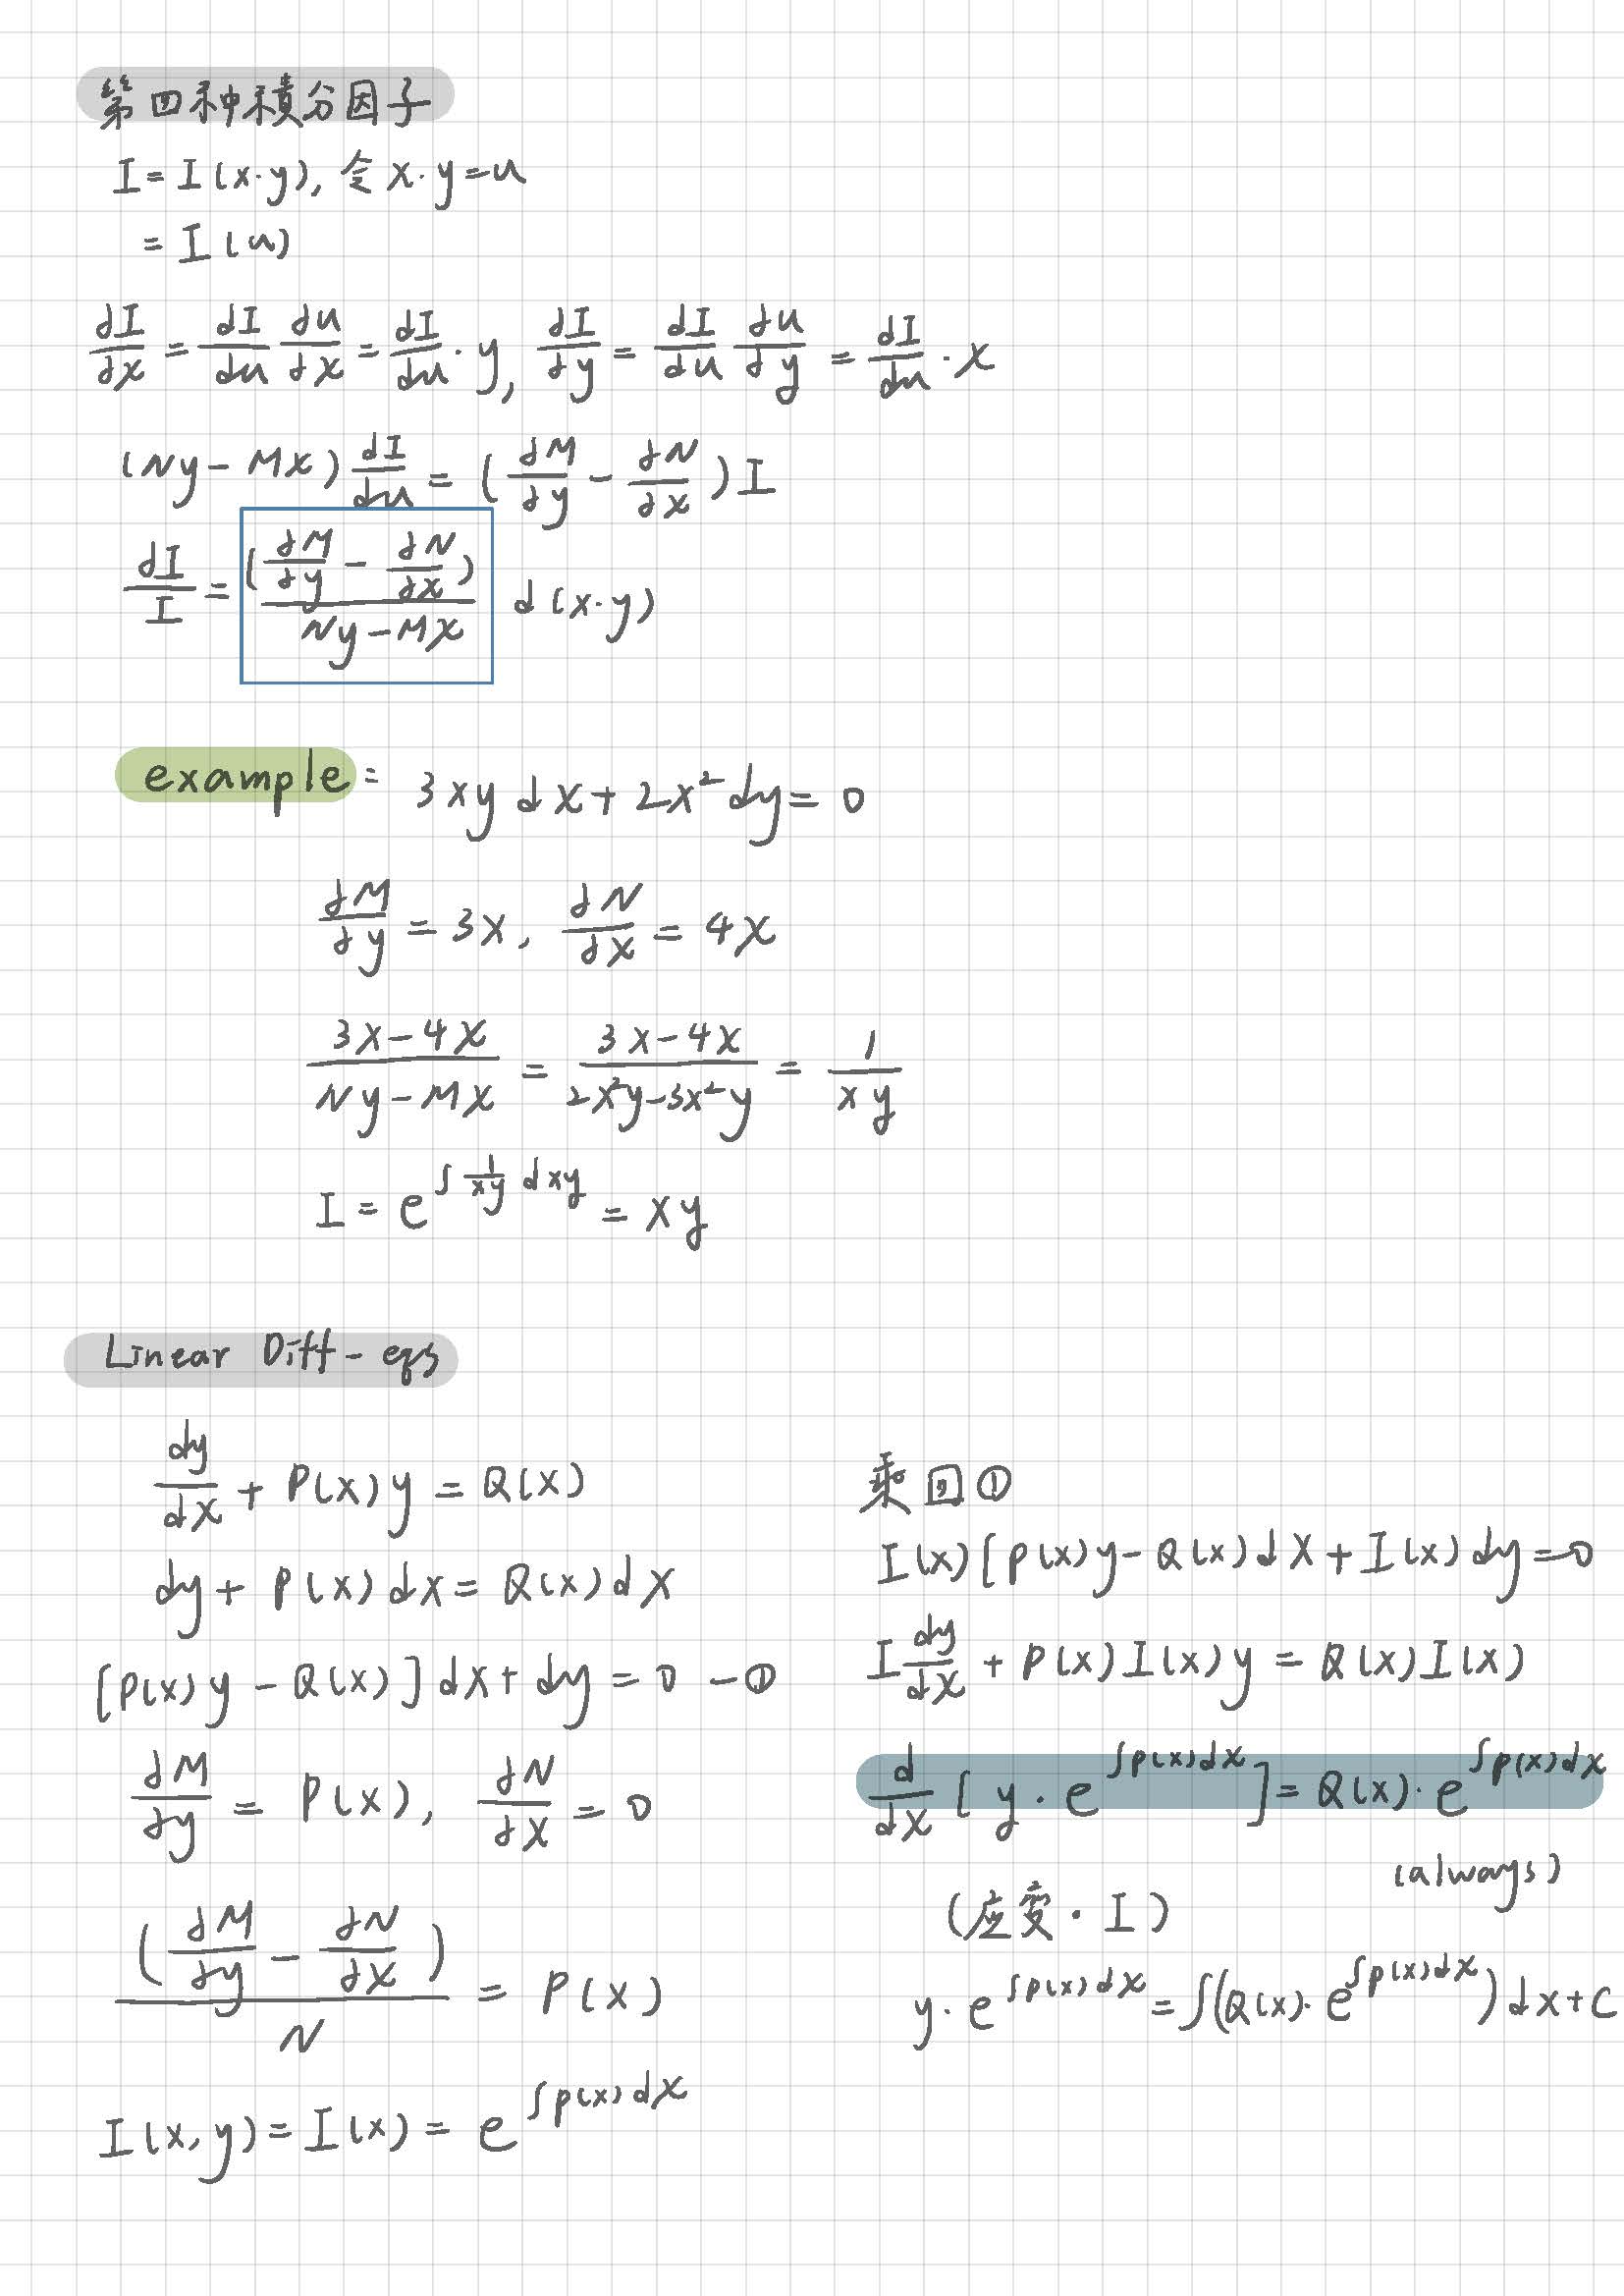 第四种積分因子
I = I(x·y), 令 x·y = u
= I(u)
∂I/∂x = dI/du ∂u/∂x = dI/du · y, ∂I/∂y = dI/du ∂u/∂y = dI/du · x
(Ny - Mx) dI/du = (∂M/∂y - ∂N/∂x) I
dI/I = (∂M/∂y - ∂N/∂x)/(Ny - Mx) d(x·y)
example = 3xy dx + 2x² dy = 0
∂M/∂y = 3x, ∂N/∂x = 4x
(3x - 4x)/(Ny - Mx) = (3x - 4x)/(2x²y - 3x²y) = 1/(xy)
I = e^{∫ 1/(xy) dxy} = xy
Linear Diff - eqs
dy/dx + P(x) y = Q(x)
dy + P(x) dx = Q(x) dx
[P(x) y - Q(x)] dx + dy = 0 — ①
∂M/∂y = P(x), ∂N/∂x = 0
(∂M/∂y - ∂N/∂x)/N = P(x)
I(x, y) = I(x) = e^{∫P(x) dx}
乘回①
I(x) [P(x) y - Q(x) dx + I(x) dy = 0
I dy/dx + P(x) I(x) y = Q(x) I(x)
d/dx [y · e^{∫P(x) dx}] = Q(x) · e^{∫P(x) dx}
(always)
(应变 · I)
y · e^{∫P(x) dx} = ∫(Q(x) · e^{∫P(x) dx}) dx + C